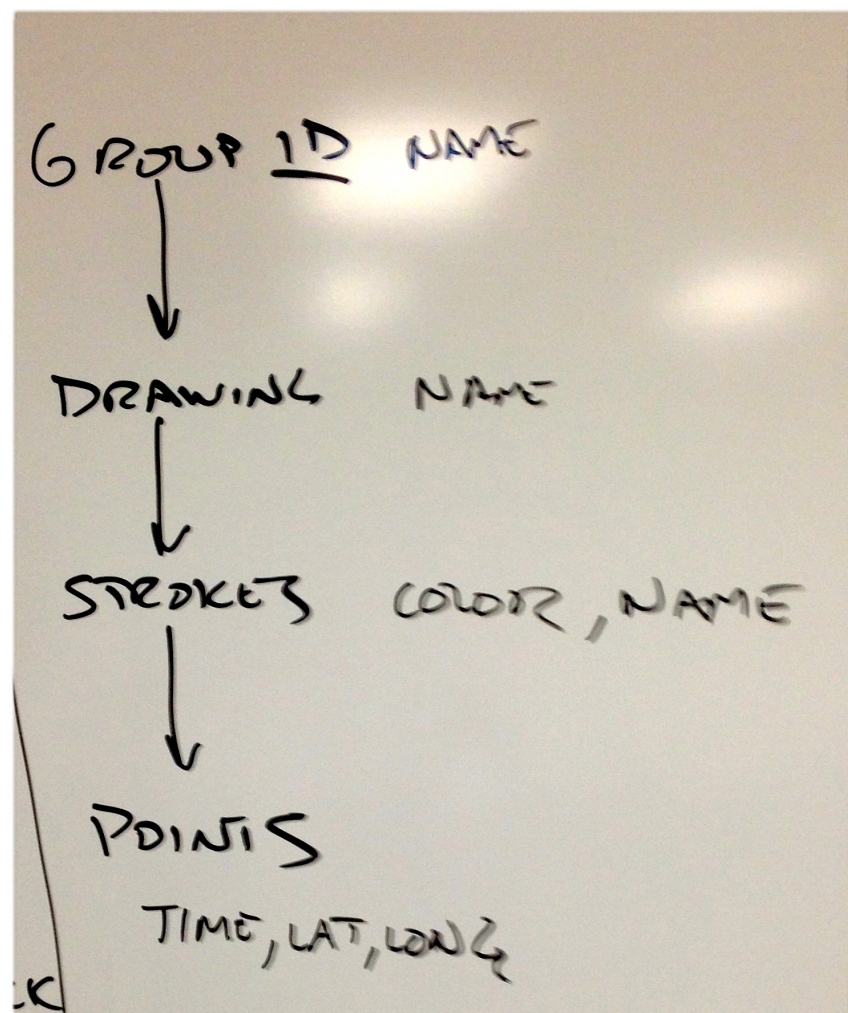 GROUP ID NAME
DRAWING NAME
STROKES COLOR, NAME
POINTS
TIME, LAT, LONG
CK